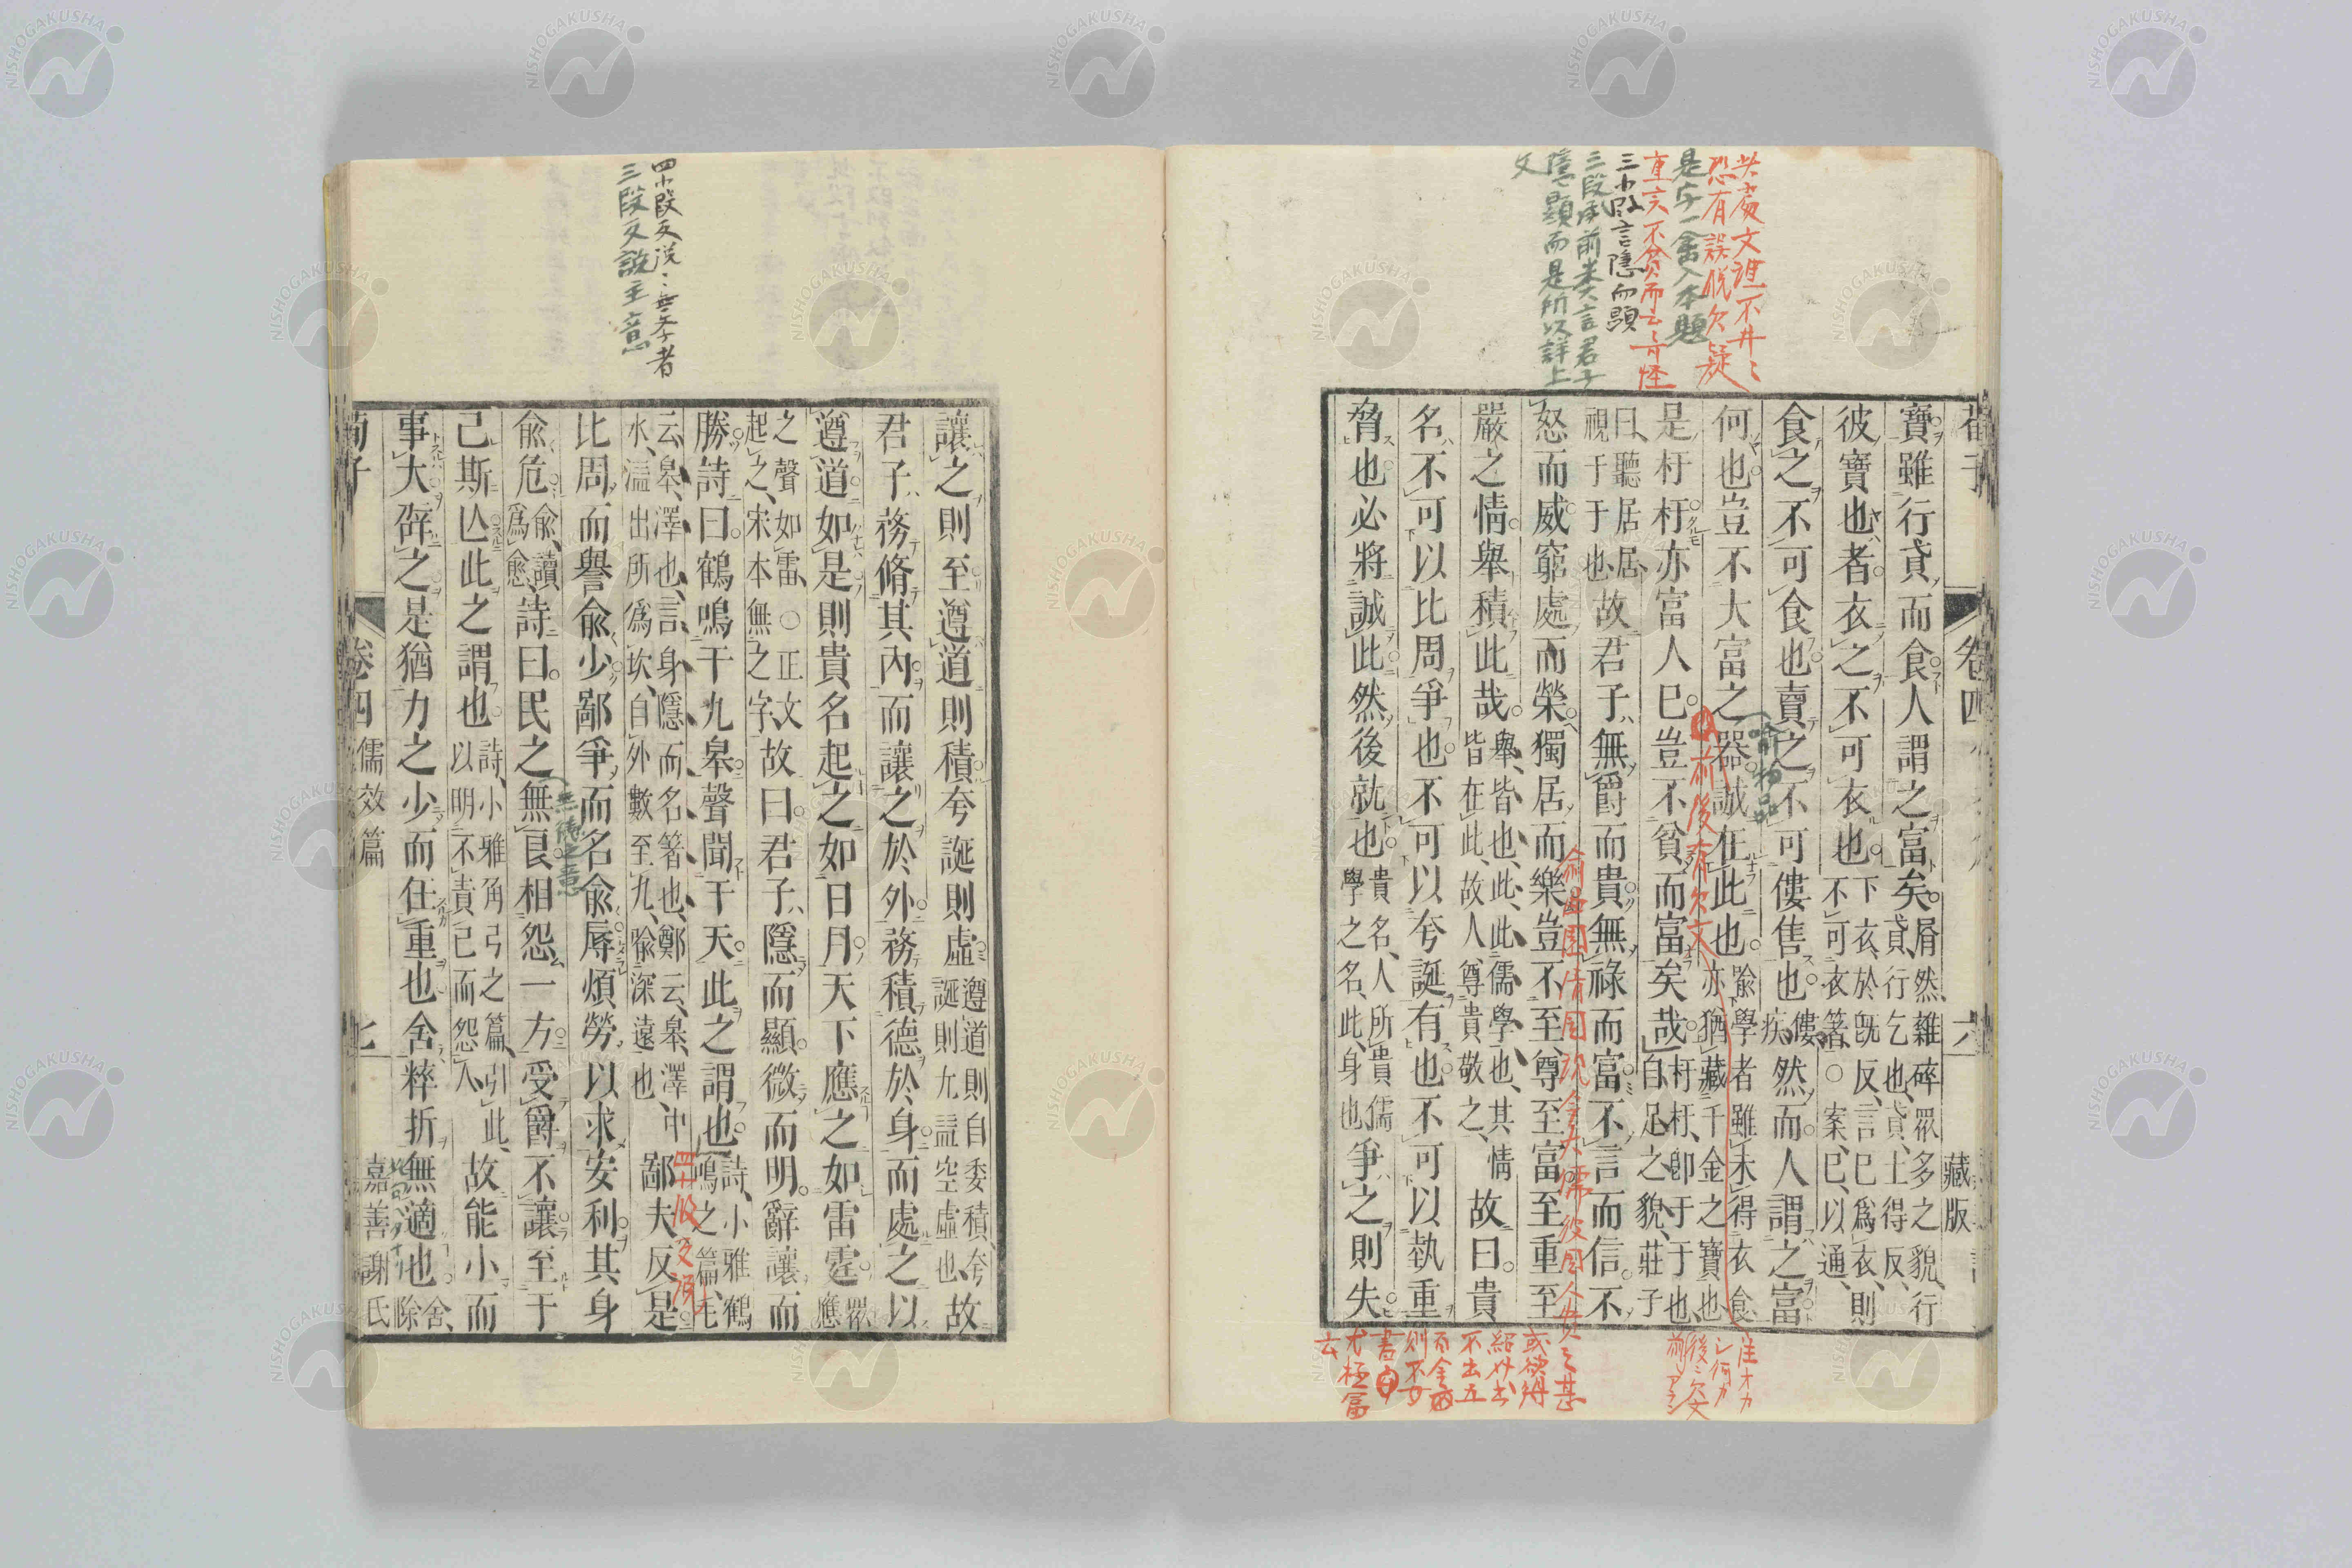 荀子 卷四 六 藏版
此處文誼不井〻
恐有誤脱欠疑
是字一舍入本題
重言不貧而云〻可怪
三小段言隱而顯
三段承前类言君子
隱〻顯而是所以詳上
文
寶雖行貣而食人謂之富矣屑然、雜碎眾多之貌、行貣、行乞也、貣、土得反、
彼寶也者衣之不可衣也下衣、於旣反、言已爲衣、則不可衣箸○案已、以通、
食之不可食也賣之不可僂售也僂、疾、然而人謂之富
何也豈不大富之器誠在此也喩學者雖未得衣食亦猶藏千金之寶也
是杅杅亦富人巳豈不貧而富矣哉杅杅、卽于于也、自足之貌、莊子
曰、聽居居視于于也、故君子無爵而貴無祿而富不言而信不
怒而威窮處而榮獨居而樂豈不至尊至富至重至
嚴之情舉積此哉舉、皆也、此、此儒學也、其情皆在此、故人尊貴敬之、故曰貴
名不可以比周爭也不可以夸誕有也不可以執重
脅也必將誠此然後就也貴名、人所貴儒學之名、此、身也爭之則失
物品
前後有欠文
注オカ
シ何カ
後ニ欠文
前アラン
或欲得
不出五
百金
書
尤極富
云
四小段反説〻無学者
三段反説主意
讓之則至遵道則積夸誕則虛遵道則自委積、夸誕則尢益空虛也、故
君子務脩其內而讓之於外務積德於身而處之以
遵道如是則貴名起之如日月天下應之如雷霆眾應
之聲如雷、○正文起之、宋本無之字故曰君子隱而顯微而明辭讓而
勝詩曰鶴鳴于九皋聲聞于天此之謂也詩、小雅鶴鳴之篇、毛
云、皋、澤也、言身隱而名箸也、鄭云、皋、澤中水溢出所爲坎、自外數至九、喩深遠也、鄙夫反是
四小段反説
比周而譽兪少鄙爭而名兪辱煩勞以求安利其身
兪危兪、讀爲愈、詩曰民之無良相怨一方受爵不讓至于
無徳之意
己斯亾此之謂也詩、小雅角弓之篇、引此、以明不責己而怨人、故能小而
事大辟之是猶力之少而任重也舍粹折無適也舍、除
荀子 卷四 儒效篇 七 嘉善謝氏